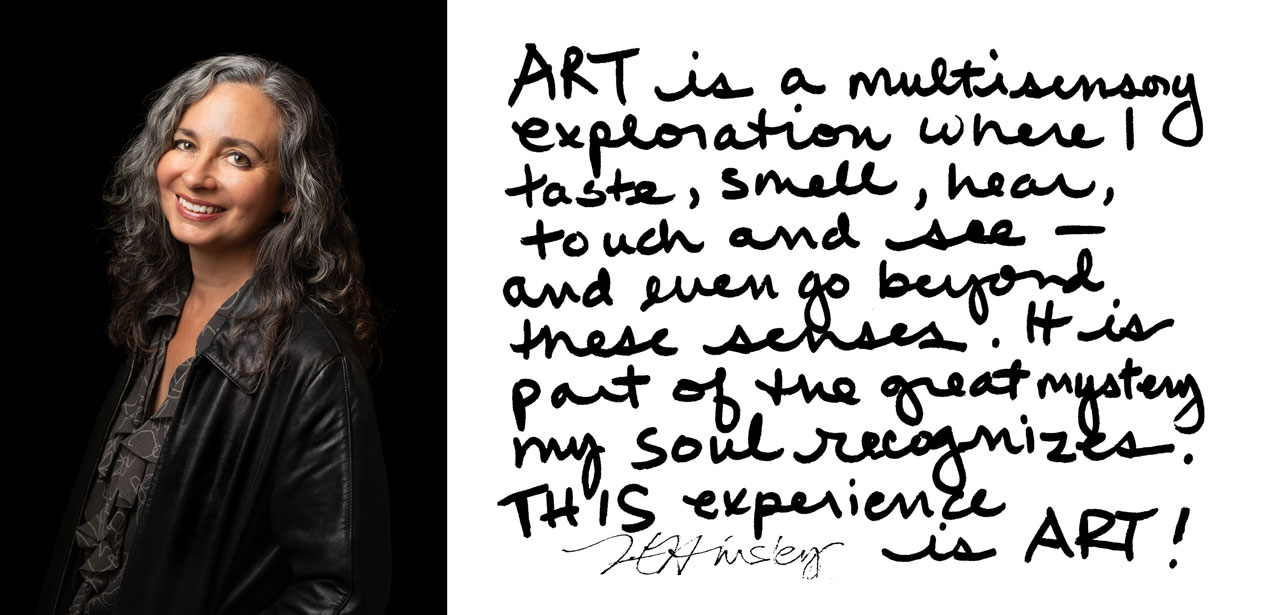 ART is a multisensory
exploration where I
taste, smell, hear,
touch and see —
and even go beyond
these senses. It is
part of the great mystery
my soul recognizes.
THIS experience
is ART!